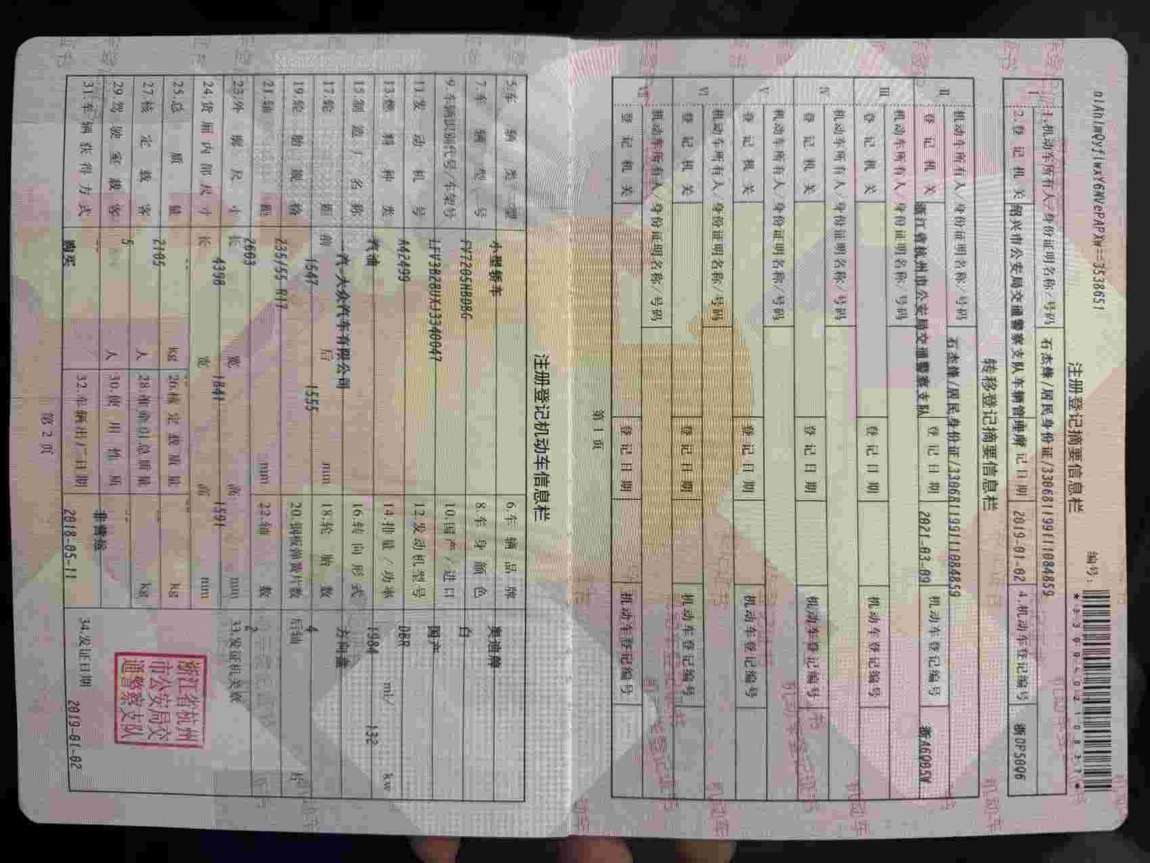 注册登记摘要信息栏
1.机动车所有人/身份证明名称/号码 石杰锋/居民身份证/330681199111084859
2.登记机关 绍兴市公安局交通警察支队车辆管理所 3.登记日期 2019-01-02 4.机动车登记编号 浙DP58Q6
转移登记摘要信息栏
II 机动车所有人/身份证明名称/号码 石杰锋/居民身份证/330681199111084859
登记机关 浙江省杭州市公安局交通警察支队 登记日期 2021-03-09 机动车登记编号 浙A6Q85W
III 机动车所有人/身份证明名称/号码
登记机关 登记日期 机动车登记编号
IV 机动车所有人/身份证明名称/号码
登记机关 登记日期 机动车登记编号
V 机动车所有人/身份证明名称/号码
登记机关 登记日期 机动车登记编号
VI 机动车所有人/身份证明名称/号码
登记机关 登记日期 机动车登记编号
VII 机动车所有人/身份证明名称/号码
登记机关 登记日期 机动车登记编号
第1页
注册登记机动车信息栏
5.车辆类型 小型轿车 6.车辆品牌 奥迪牌
7.车辆型号 FV7205HBDBG 8.车身颜色 白
9.车辆识别代号/车架号 LFV3B28UXJ3340047 10.国产/进口 国产
11.发动机号 A42499 12.发动机型号 DBR
13.燃料种类 汽油 14.排量/功率 1984 ml/ 132 kw
15.制造厂名称 一汽-大众汽车有限公司 16.转向形式 方向盘
17.轮距 前 1547 后 1555 mm 18.轮胎数 4
19.轮胎规格 235/55 R17 20.钢板弹簧片数 后轴 片
21.轴距 2603 mm 22.轴数 2
23.外廓尺寸 长 4398 宽 1841 高 1591 mm 33.发证机关章
24.货厢内部尺寸 长 宽 高 mm
25.总质量 2105 kg 26.核定载质量 kg
27.核定载客 5 人 28.准牵引总质量 kg
29.驾驶室载客 人 30.使用性质 非营运
31.车辆获得方式 购买 32.车辆出厂日期 2018-05-11 34.发证日期 2019-01-02
浙江省杭州
市公安局交
通警察支队
第2页